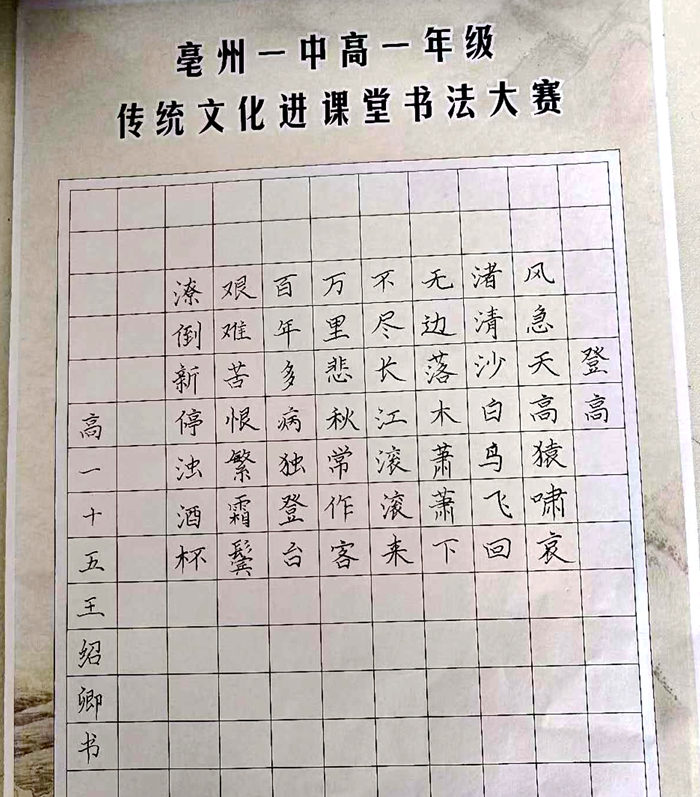 亳州一中高一年级
传统文化进课堂书法大赛
登高
风急天高猿啸哀
渚清沙白鸟飞回
无边落木萧萧下
不尽长江滚滚来
万里悲秋常作客
百年多病独登台
艰难苦恨繁霜鬓
潦倒新停浊酒杯
高一十五王绍卿书